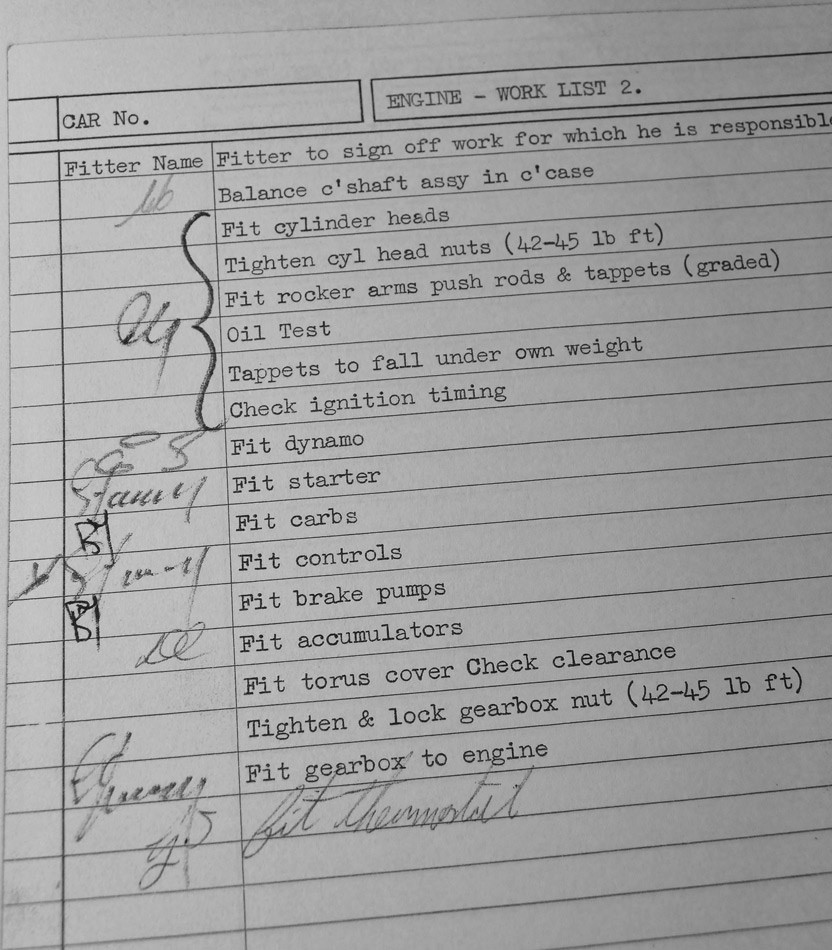 CAR No.
ENGINE - WORK LIST 2.
Fitter Name
Fitter to sign off work for which he is responsible
Balance c'shaft assy in c'case
Fit cylinder heads
Tighten cyl head nuts (42-45 lb ft)
Fit rocker arms push rods & tappets (graded)
Oil Test
Tappets to fall under own weight
Check ignition timing
Fit dynamo
Fit starter
Fit carbs
Fit controls
Fit brake pumps
Fit accumulators
Fit torus cover Check clearance
Tighten & lock gearbox nut (42-45 lb ft)
Fit gearbox to engine
fit thermostat